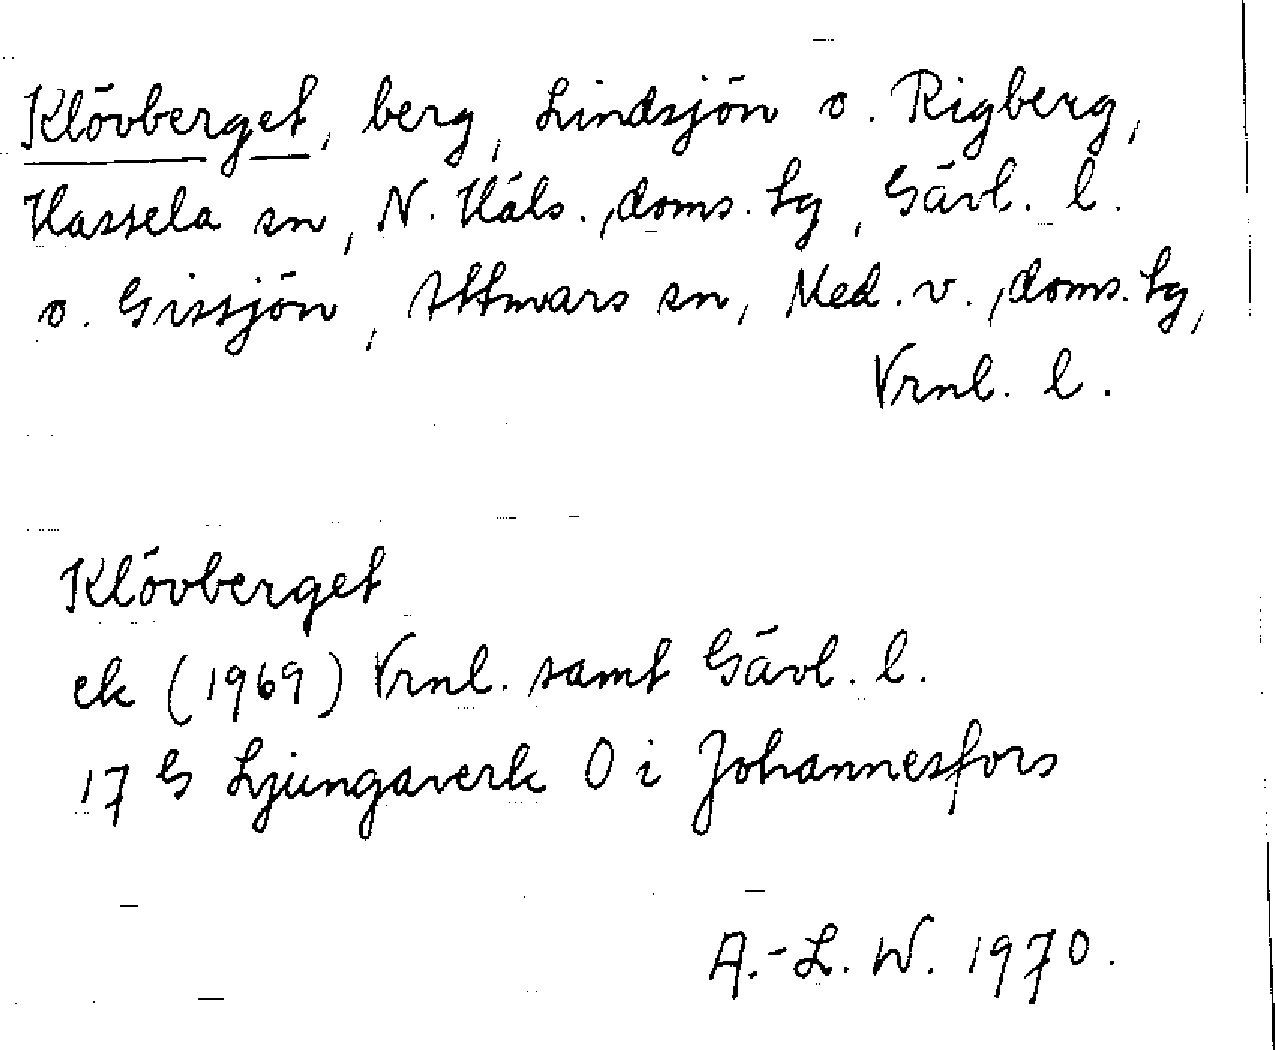 Klövberget, berg, Lindsjön o. Rigberg,
Hassela sn, N. Häls., doms. tg, Gävl. l.
o. Gissjön, Attmars sn, Med. v., doms. tg,
Vrnl. l.
Klövberget
ek (1969) Vrnl. samt Gävl. l.
17 G Ljungaverk O i Johannesfors
A.-L. W. 1970.